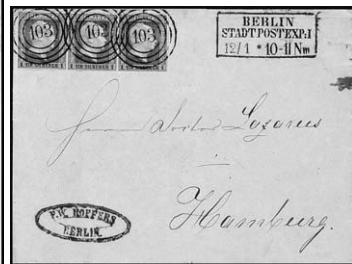 103 103 103
BERLIN
STADTPOSTEXP:I
12/1 * 10-11 Nm
Herrn Doctor Lazarus
Hamburg.
BERLIN.